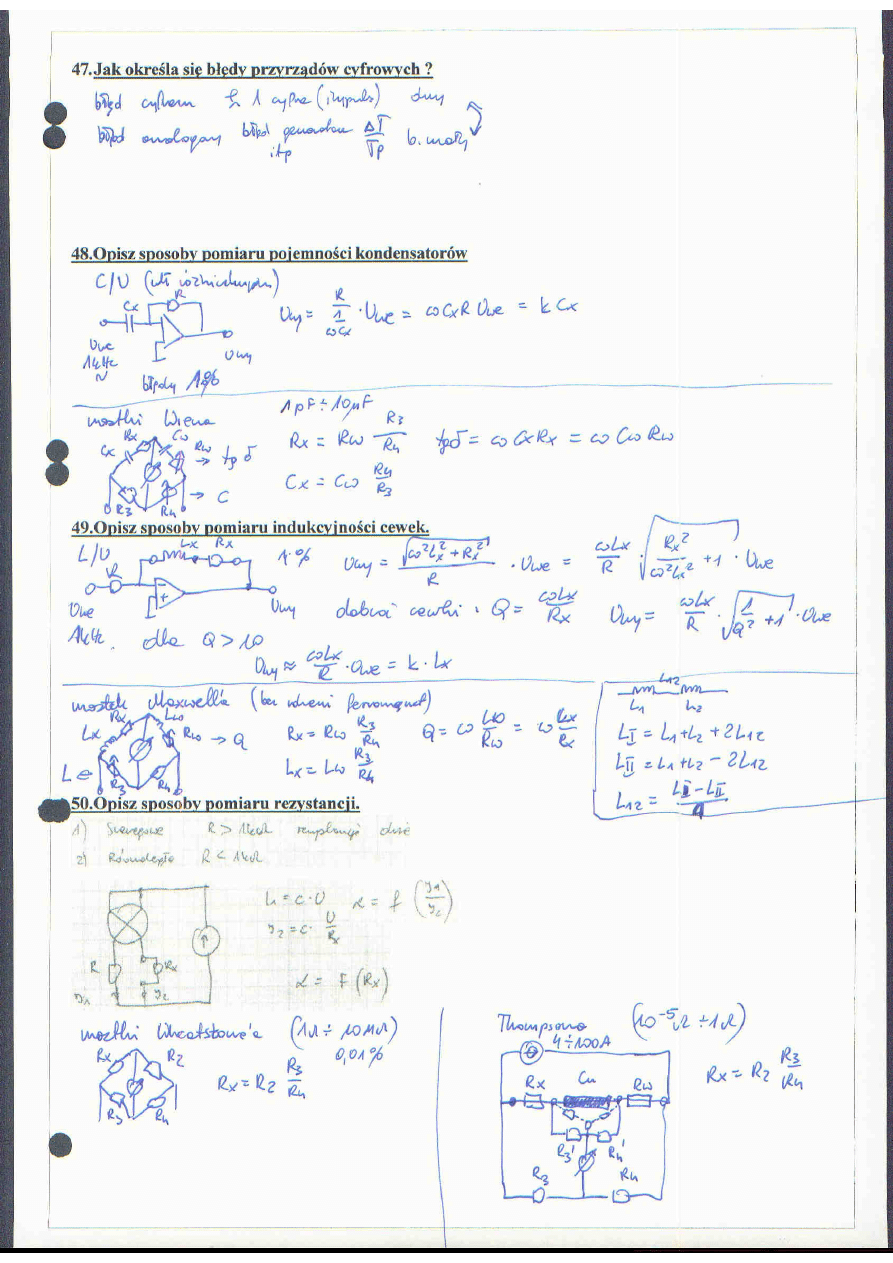 47.Jak określa się błędy przyrządów cyfrowych ?
błąd cyfrowy ± 1 cyfra (impuls) duży
błąd analogowy błąd generatora ΔT/Tp b. mały
itp
48.Opisz sposoby pomiaru pojemności kondensatorów
C/U (ukł różniczkujący)
R
Cx
Uwy = R/(1/ωCx) · Uwe = ωCxR Uwe = k Cx
Uwe
1kHz
~
Uwy
błędy 1%
mostki Wiena
1pF ÷ 10μF
Rx Cw
Cx Rw → tg δ
Rx = Rw R3/R4 tgδ = ωCxRx = ωCwRw
→ C
Cx = Cw R4/R3
R3 R4
49.Opisz sposoby pomiaru indukcyjności cewek.
L/U Lx Rx 1% Uwy = √(ω²Lx² + Rx²)/R · Uwe = ωLx/R · √(Rx²/ω²Lx² + 1) · Uwe
R
Uwe Uwy dobroć cewki : Q = ωLx/Rx Uwy = ωLx/R · √(1/Q² + 1) · Uwe
1kHz. dla Q > 10
Uwy ≈ ωLx/R · Uwe = k · Lx
mostek Maxwell'a (bez rdzeni ferromagnet)
Rx Lw
Lx Rw → Q
Rx = Rw R3/R4 Q = ω Lw/Rw = ω Lx/Rx
L
Lx = Lw R3/R4
R3 R4
L12
L1 L2
LI = L1+L2+2L12
LII = L1+L2 − 2L12
L12 = (LI − LII)/4
50.Opisz sposoby pomiaru rezystancji.
1) Szeregowe R > 1kΩ
2) Równoległe R < 1kΩ
I1 = c·U α = f (I1/I2)
I2 = c· U/Rx
R Rx
I1 I2
α = F (Rx)
mostki Wheatstone'a (1Ω ÷ 10MΩ)
0,01%
Rx R2
Rx = R2 R3/R4
R3 R4
Thompsona (10⁻⁵Ω ÷ 1Ω)
4÷100A
Rx Cu Rw
Rx = R2 R3/R4
R3' R4'
R3 R4